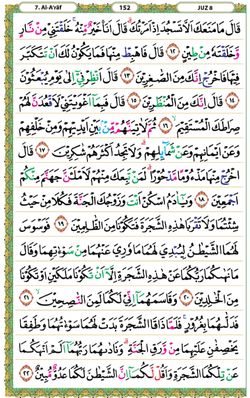 7. Al-A'râf
152
JUZ 8
قَالَ مَا مَنَعَكَ أَلَّا تَسْجُدَ إِذْ أَمَرْتُكَ قَالَ أَنَا۠ خَيْرٌ مِّنْهُ خَلَقْتَنِى مِن نَّارٍ
وَخَلَقْتَهُۥ مِن طِينٍ ١٢ قَالَ فَٱهْبِطْ مِنْهَا فَمَا يَكُونُ لَكَ أَن تَتَكَبَّرَ
فِيهَا فَٱخْرُجْ إِنَّكَ مِنَ ٱلصَّـٰغِرِينَ ١٣ قَالَ أَنظِرْنِىٓ إِلَىٰ يَوْمِ يُبْعَثُونَ
١٤ قَالَ إِنَّكَ مِنَ ٱلْمُنظَرِينَ ١٥ قَالَ فَبِمَآ أَغْوَيْتَنِى لَأَقْعُدَنَّ لَهُمْ
صِرَٰطَكَ ٱلْمُسْتَقِيمَ ١٦ ثُمَّ لَـَٔاتِيَنَّهُم مِّنۢ بَيْنِ أَيْدِيهِمْ وَمِنْ خَلْفِهِمْ
وَعَنْ أَيْمَـٰنِهِمْ وَعَن شَمَآئِلِهِمْ وَلَا تَجِدُ أَكْثَرَهُمْ شَـٰكِرِينَ ١٧ قَالَ
ٱخْرُجْ مِنْهَا مَذْءُومًا مَّدْحُورًا لَّمَن تَبِعَكَ مِنْهُمْ لَأَمْلَأَنَّ جَهَنَّمَ مِنكُمْ
أَجْمَعِينَ ١٨ وَيَـٰٓـَٔادَمُ ٱسْكُنْ أَنتَ وَزَوْجُكَ ٱلْجَنَّةَ فَكُلَا مِنْ حَيْثُ
شِئْتُمَا وَلَا تَقْرَبَا هَـٰذِهِ ٱلشَّجَرَةَ فَتَكُونَا مِنَ ٱلظَّـٰلِمِينَ ١٩ فَوَسْوَسَ
لَهُمَا ٱلشَّيْطَـٰنُ لِيُبْدِىَ لَهُمَا مَا وُۥرِىَ عَنْهُمَا مِن سَوْءَٰتِهِمَا وَقَالَ
مَا نَهَىٰكُمَا رَبُّكُمَا عَنْ هَـٰذِهِ ٱلشَّجَرَةِ إِلَّآ أَن تَكُونَا مَلَكَيْنِ أَوْ تَكُونَا
مِنَ ٱلْخَـٰلِدِينَ ٢٠ وَقَاسَمَهُمَآ إِنِّى لَكُمَا لَمِنَ ٱلنَّـٰصِحِينَ ٢١
فَدَلَّىٰهُمَا بِغُرُورٍ فَلَمَّا ذَاقَا ٱلشَّجَرَةَ بَدَتْ لَهُمَا سَوْءَٰتُهُمَا وَطَفِقَا
يَخْصِفَانِ عَلَيْهِمَا مِن وَرَقِ ٱلْجَنَّةِ وَنَادَىٰهُمَا رَبُّهُمَآ أَلَمْ أَنْهَكُمَا
عَن تِلْكُمَا ٱلشَّجَرَةِ وَأَقُل لَّكُمَآ إِنَّ ٱلشَّيْطَـٰنَ لَكُمَا عَدُوٌّ مُّبِينٌ ٢٢